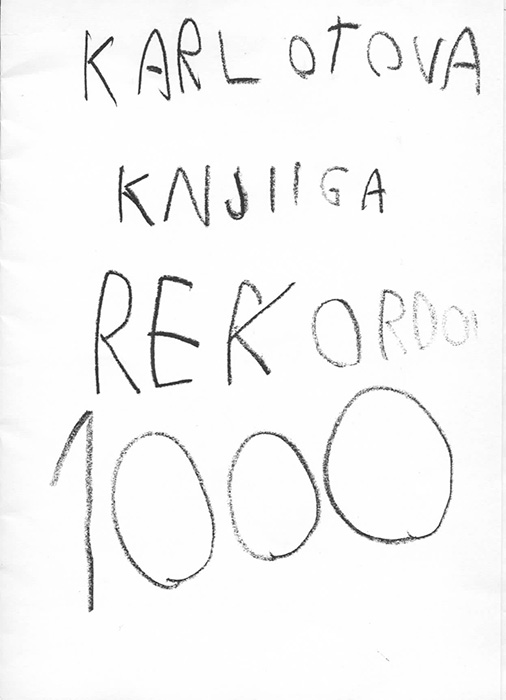 KARLOTOVA
KNJIIGA
REKORDOV
1000